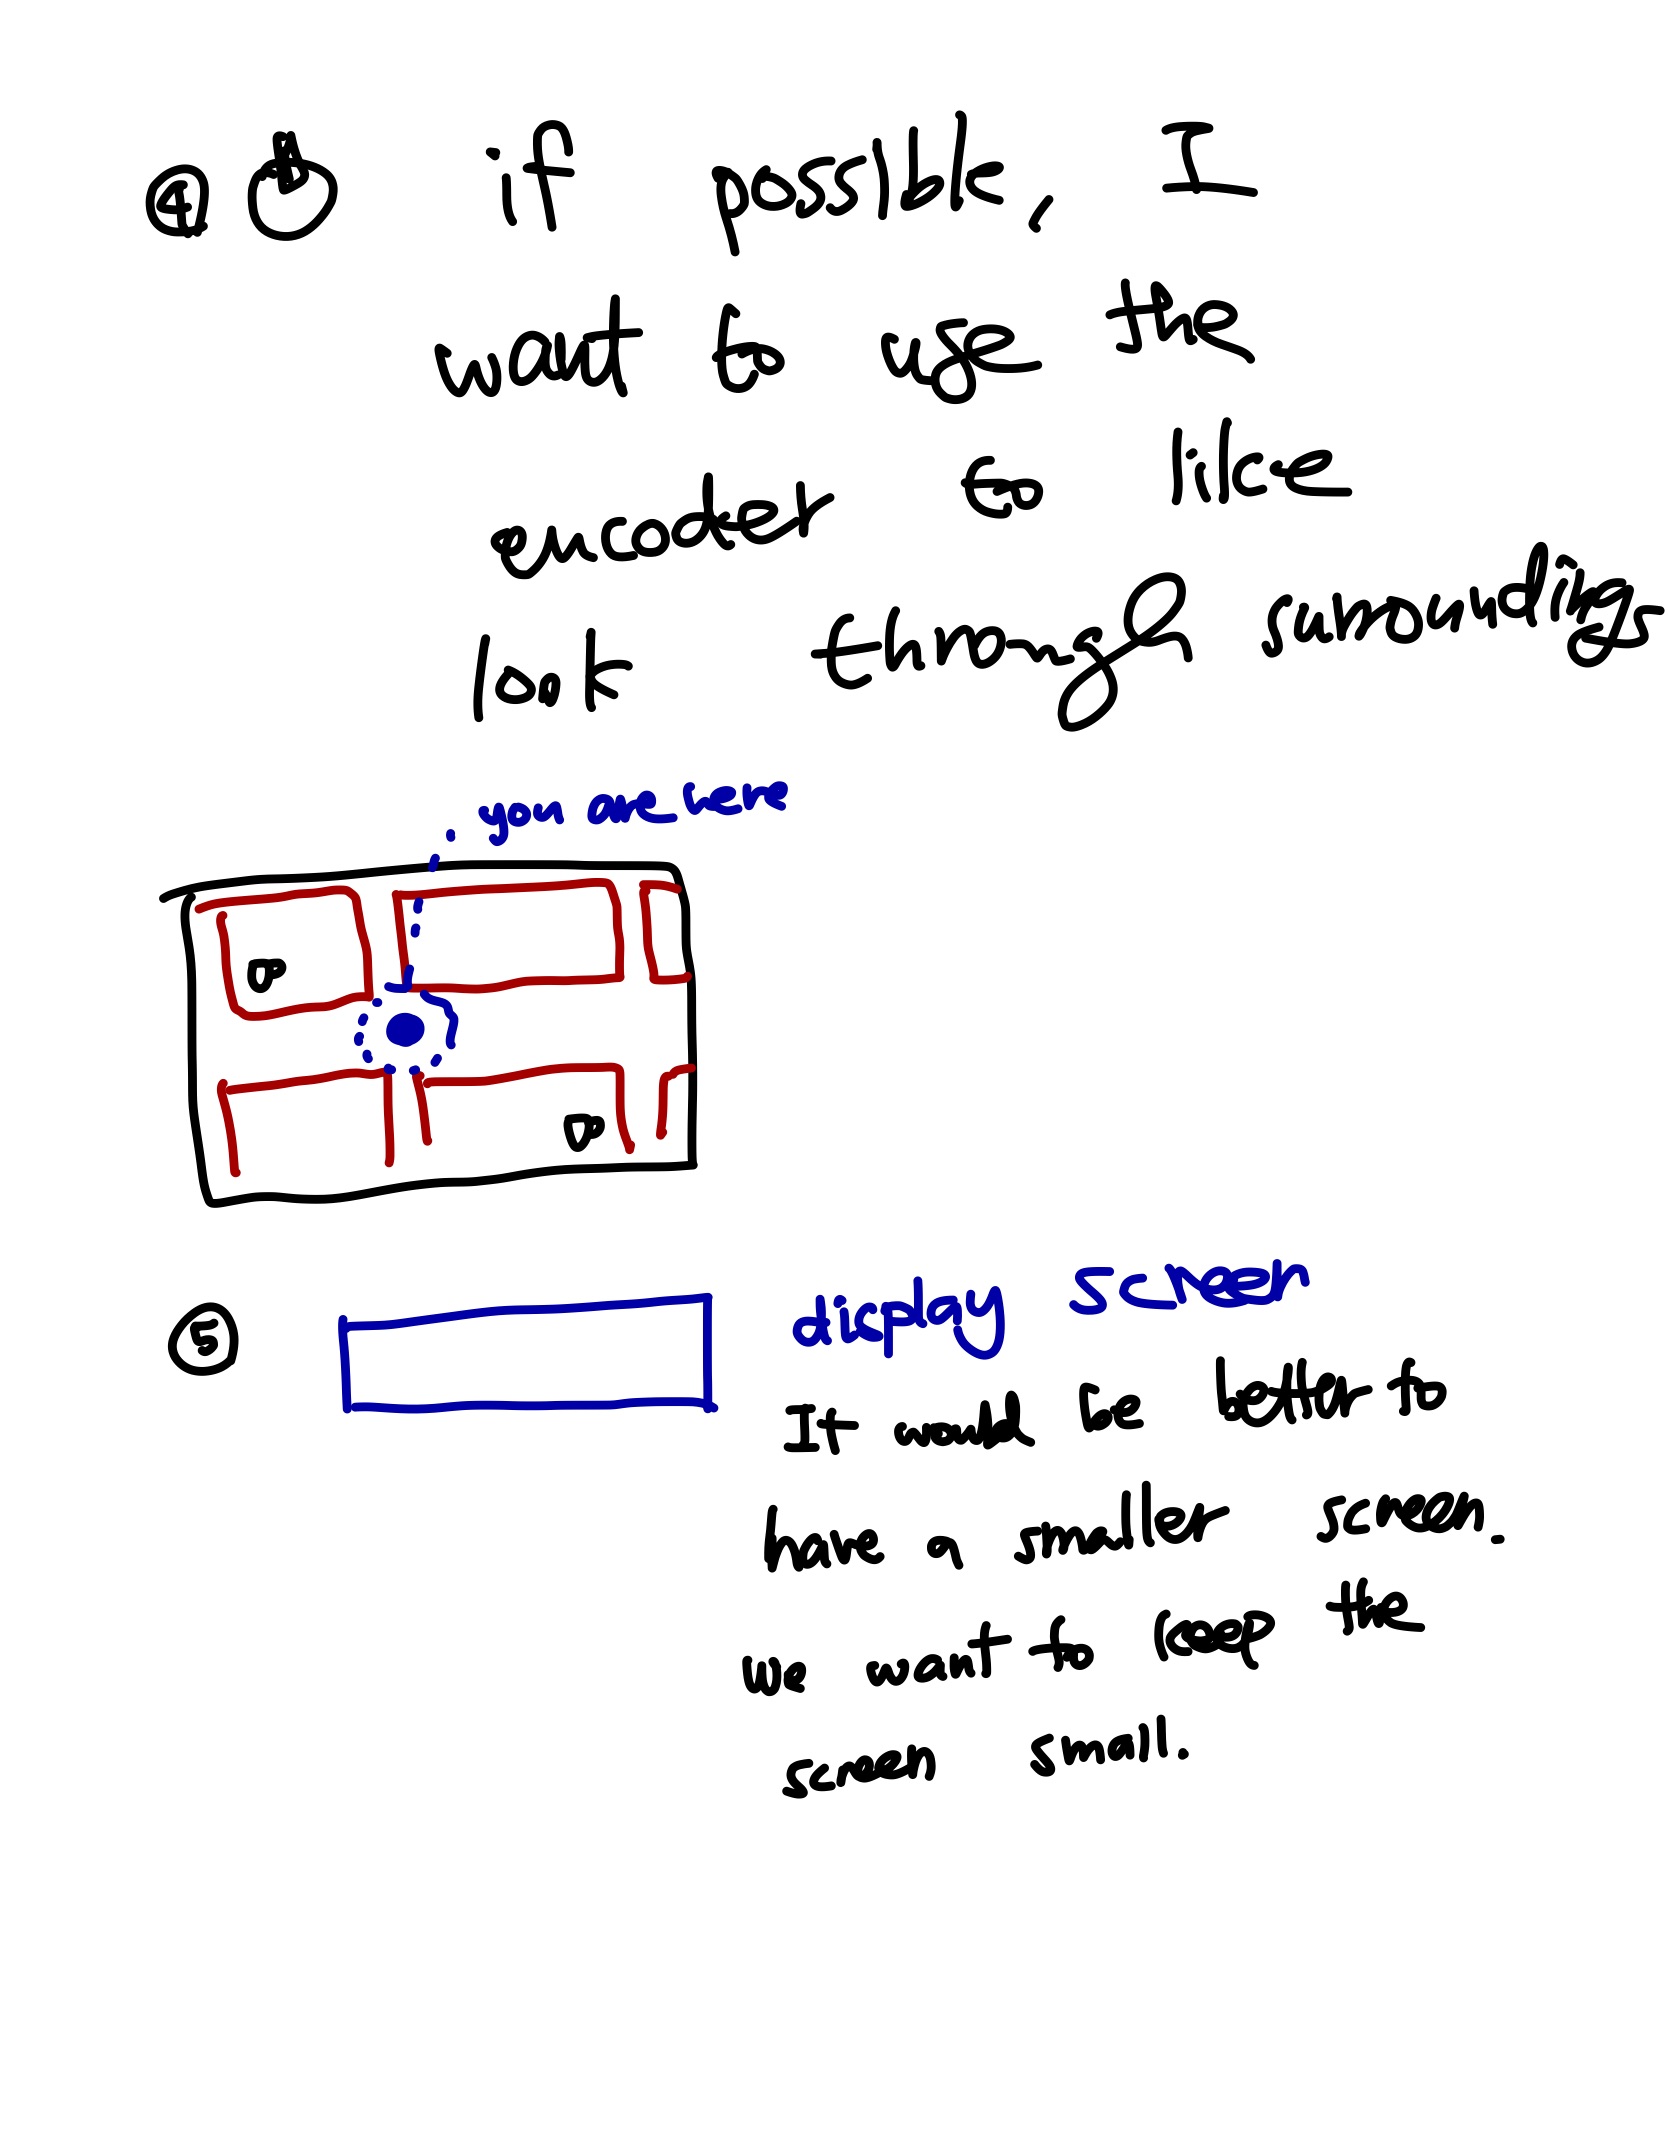 ④ if possible, I
want to use the
encoder to like
look through surroundings
you are here
⑤ display screen
It would be better to
have a smaller screen.
we want to keep the
screen small.